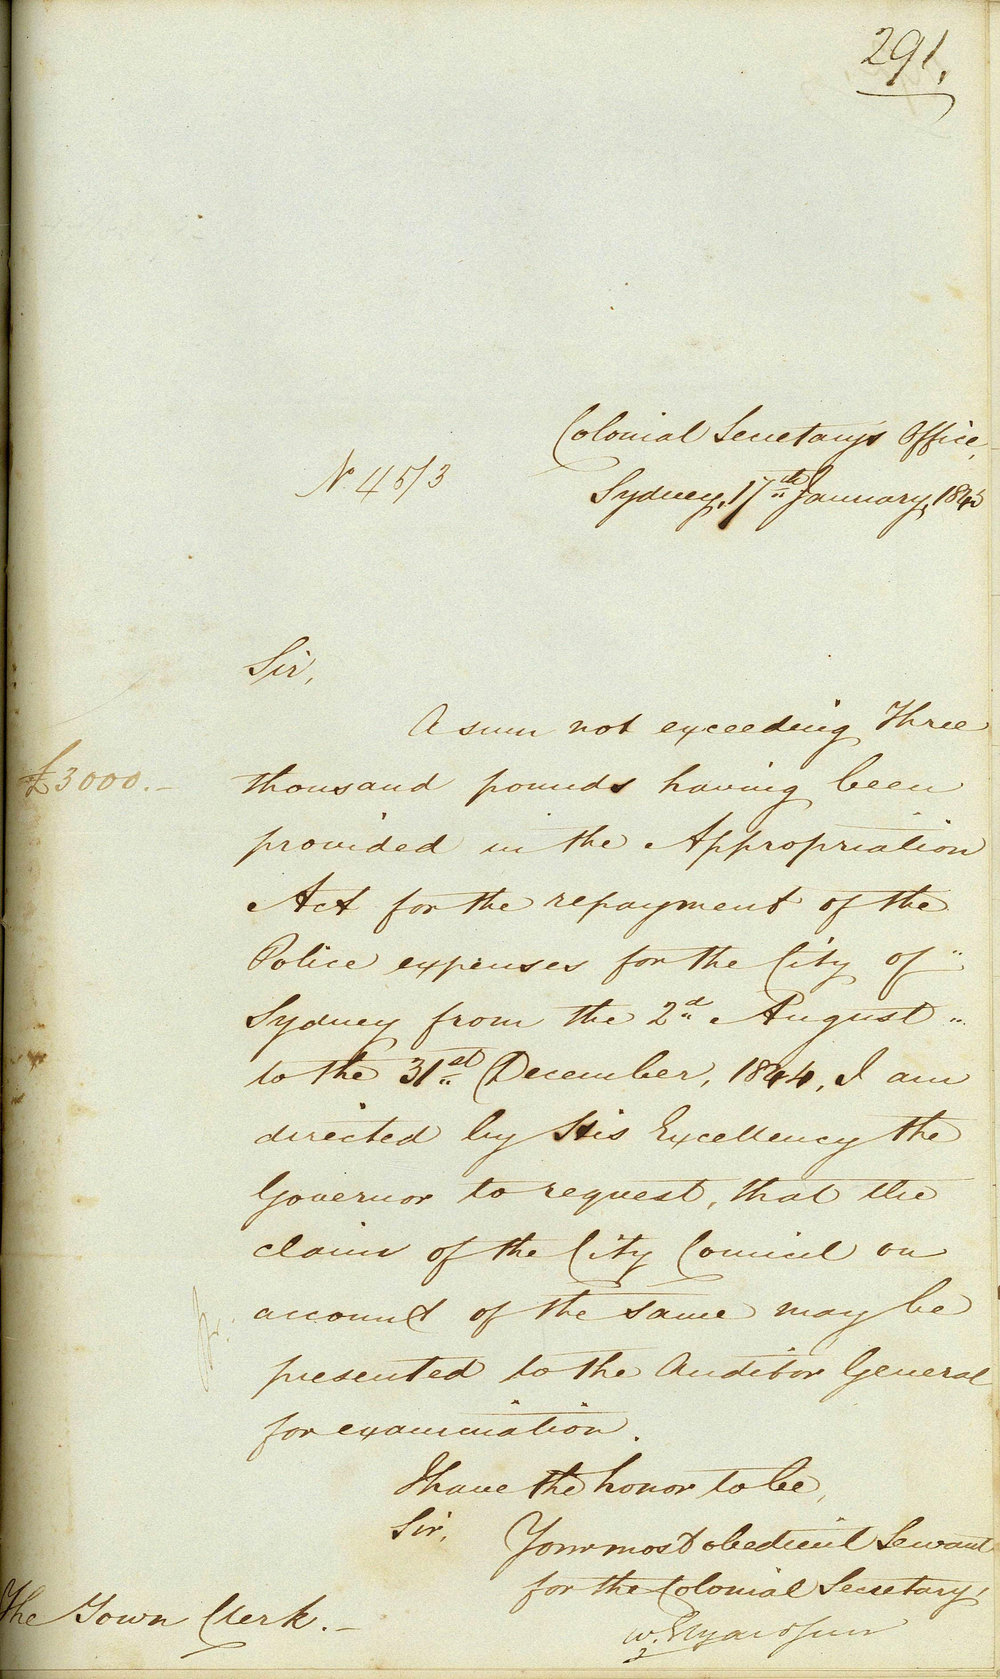 291.
Colonial Secretary's Office,
No. 45/3
Sydney, 17th January, 1845
Sir,
A sum not exceeding Three
£3000.-
thousand pounds having been
provided in the Appropriation
Act for the repayment of the
Police expenses for the City of
Sydney from the 2d August
to the 31st December, 1844, I am
directed by His Excellency the
Governor to request, that the
claim of the City Council on
account of the same may be
presented to the Auditor General
for examination.
I have the honor to be,
Sir,
Your most obedient Servant
for the Colonial Secretary,
W. Elyard Junr
The Town Clerk.-